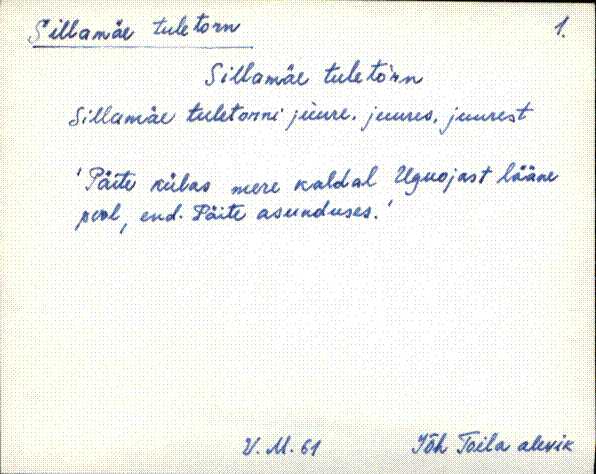 Sillamäe tuletorn 1.
Sillamäe tuletorn
Sillamäe tuletorni juure. juures, juurest
'Päite külas mere kaldal Uguojast lääne
pool, end. Päite asunduses.'
V. M. 61 Jõh Toila alevik